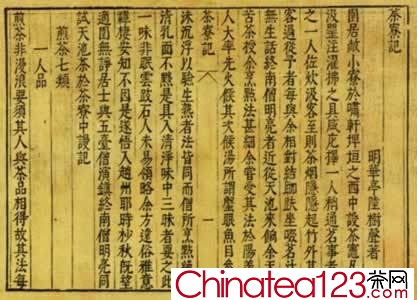 茶寮記
明華亭陸樹聲著
園居敞小寮於嘯軒埤垣之西中設茶竈凡
汲罌注濯拂之具咸庀擇一人稍通茗事者
之一人佐炊汲客至則茶烟隱隱起竹外其
客過從予者每與余相對結跏趺坐啜茗汁
無生話終南僧明亮者近從天池來餉余天
苦茶授余烹點法甚細余嘗受其法於陽羨
茶寮記 一
人大率先火候其次候湯所謂蟹眼魚目參
沫沉浮以驗生熟者法皆同而僧所烹點絕
清乳面不黟是具入清淨味中三昧者要之此
一味非眠雲跂石人未易領略余方遠俗雅意
禪棲安知不因是遂悟入趙州耶時杪秋既望
適園無諍居士與五臺僧演鎮終南僧明亮同
試天池茶於茶寮中謾記
煎茶七類
一人品
煎茶非漫浪要須其人與茶品相得故其法每
Chinatea123茶网
.com